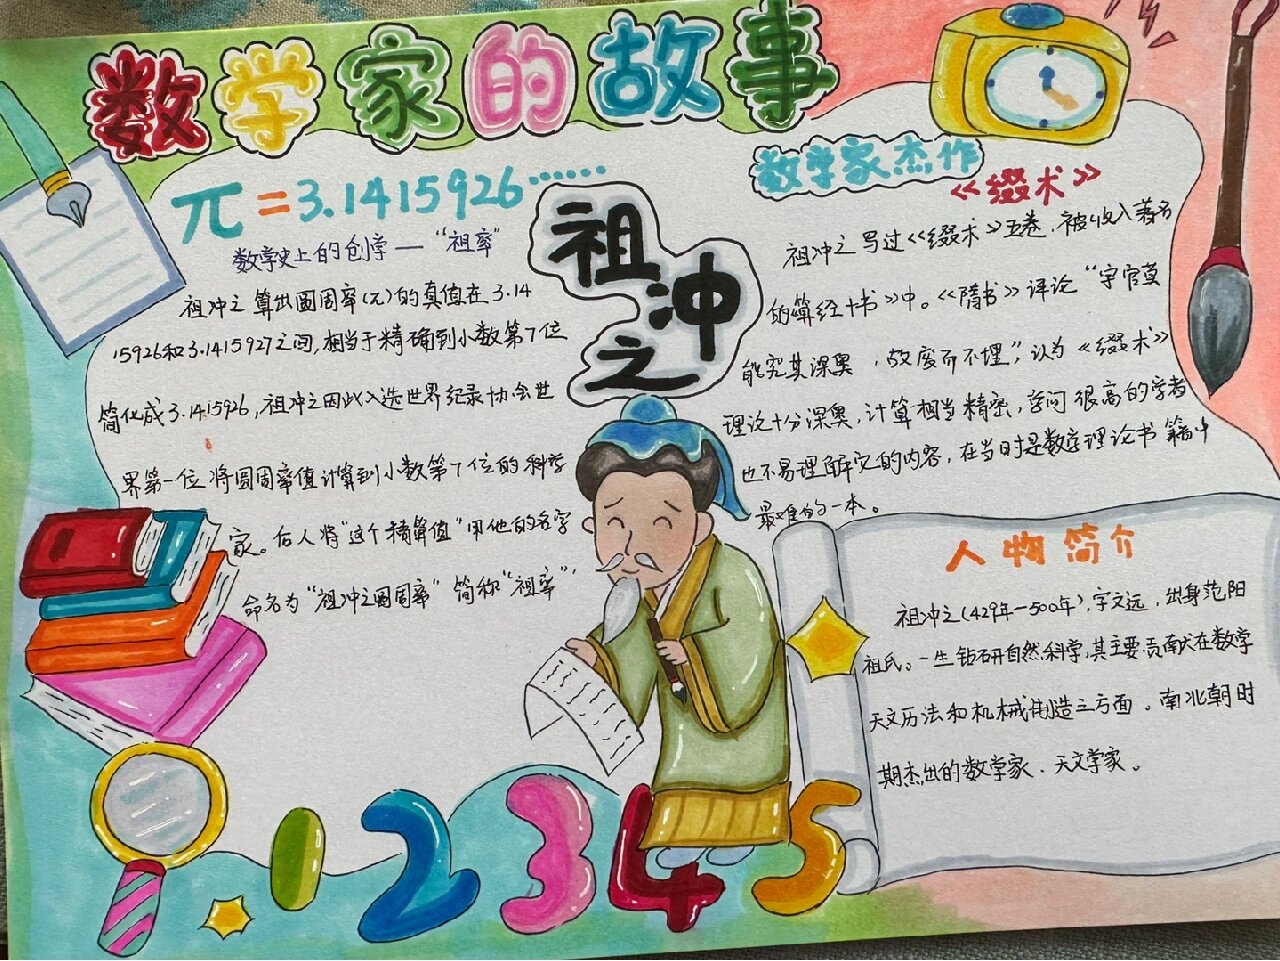 数学家的故事
π=3.1415926······
数学史上的创学—"祖率"
祖冲之算出圆周率(π)的真值在3.14
15926和3.1415927之间,相当于精确到小数第7位
简化成3.1415926,祖冲之因此入选世界纪录协会世
界第一位将圆周率值计算到小数第7位的科学
家。后人将"这个精算值"用他的名字
命名为"祖冲之圆周率"简称"祖率"
祖冲之
数学家杰作
《缀术》
祖冲之写过《缀术》五卷,被收入著名
的《算经十书》中。《隋书》评论"学官莫
能究其深奥,故废而不理",认为《缀术》
理论十分深奥,计算相当精密,学问很高的学者
也不易理解它的内容,在当时是数学理论书籍中
最难的一本。
人物简介
祖冲之(429年-500年),字文远,出身范阳
祖氏。一生钻研自然科学,其主要贡献在数学
天文历法和机械制造三方面。南北朝时
期杰出的数学家、天文学家。
1 2 3 4 5